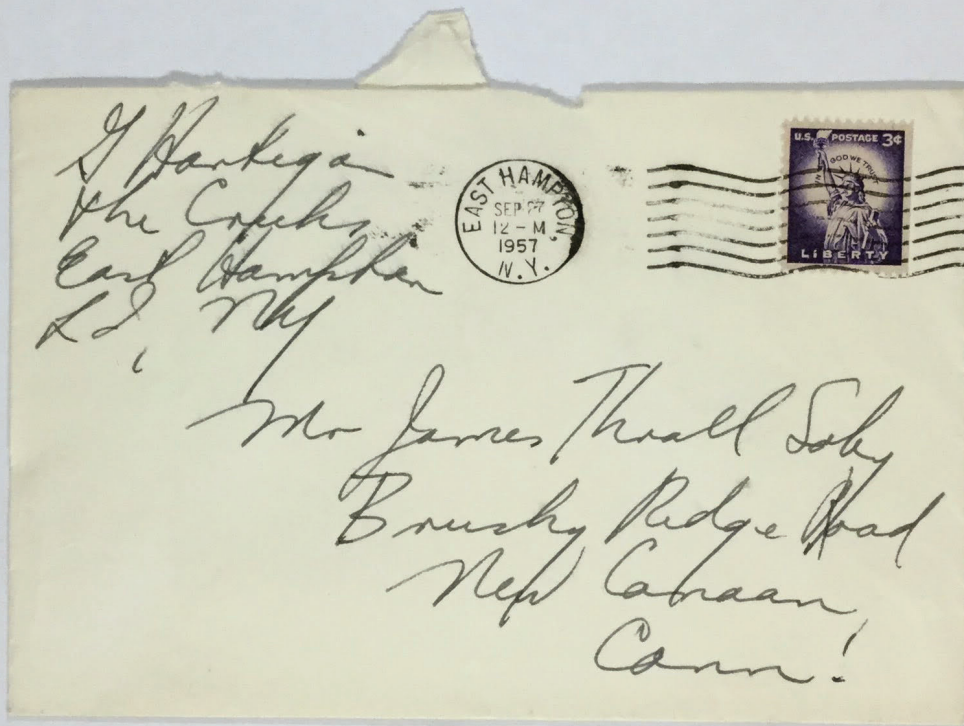 G Hartigan
The Creeks
East Hampton
L I, NY
EAST HAMPTON,
SEP 27
12 - M
1957
N.Y.
U.S. POSTAGE 3¢
IN GOD WE TRUST
LIBERTY
Mr James Thrall Soby
Brushy Ridge Road
New Canaan,
Conn!